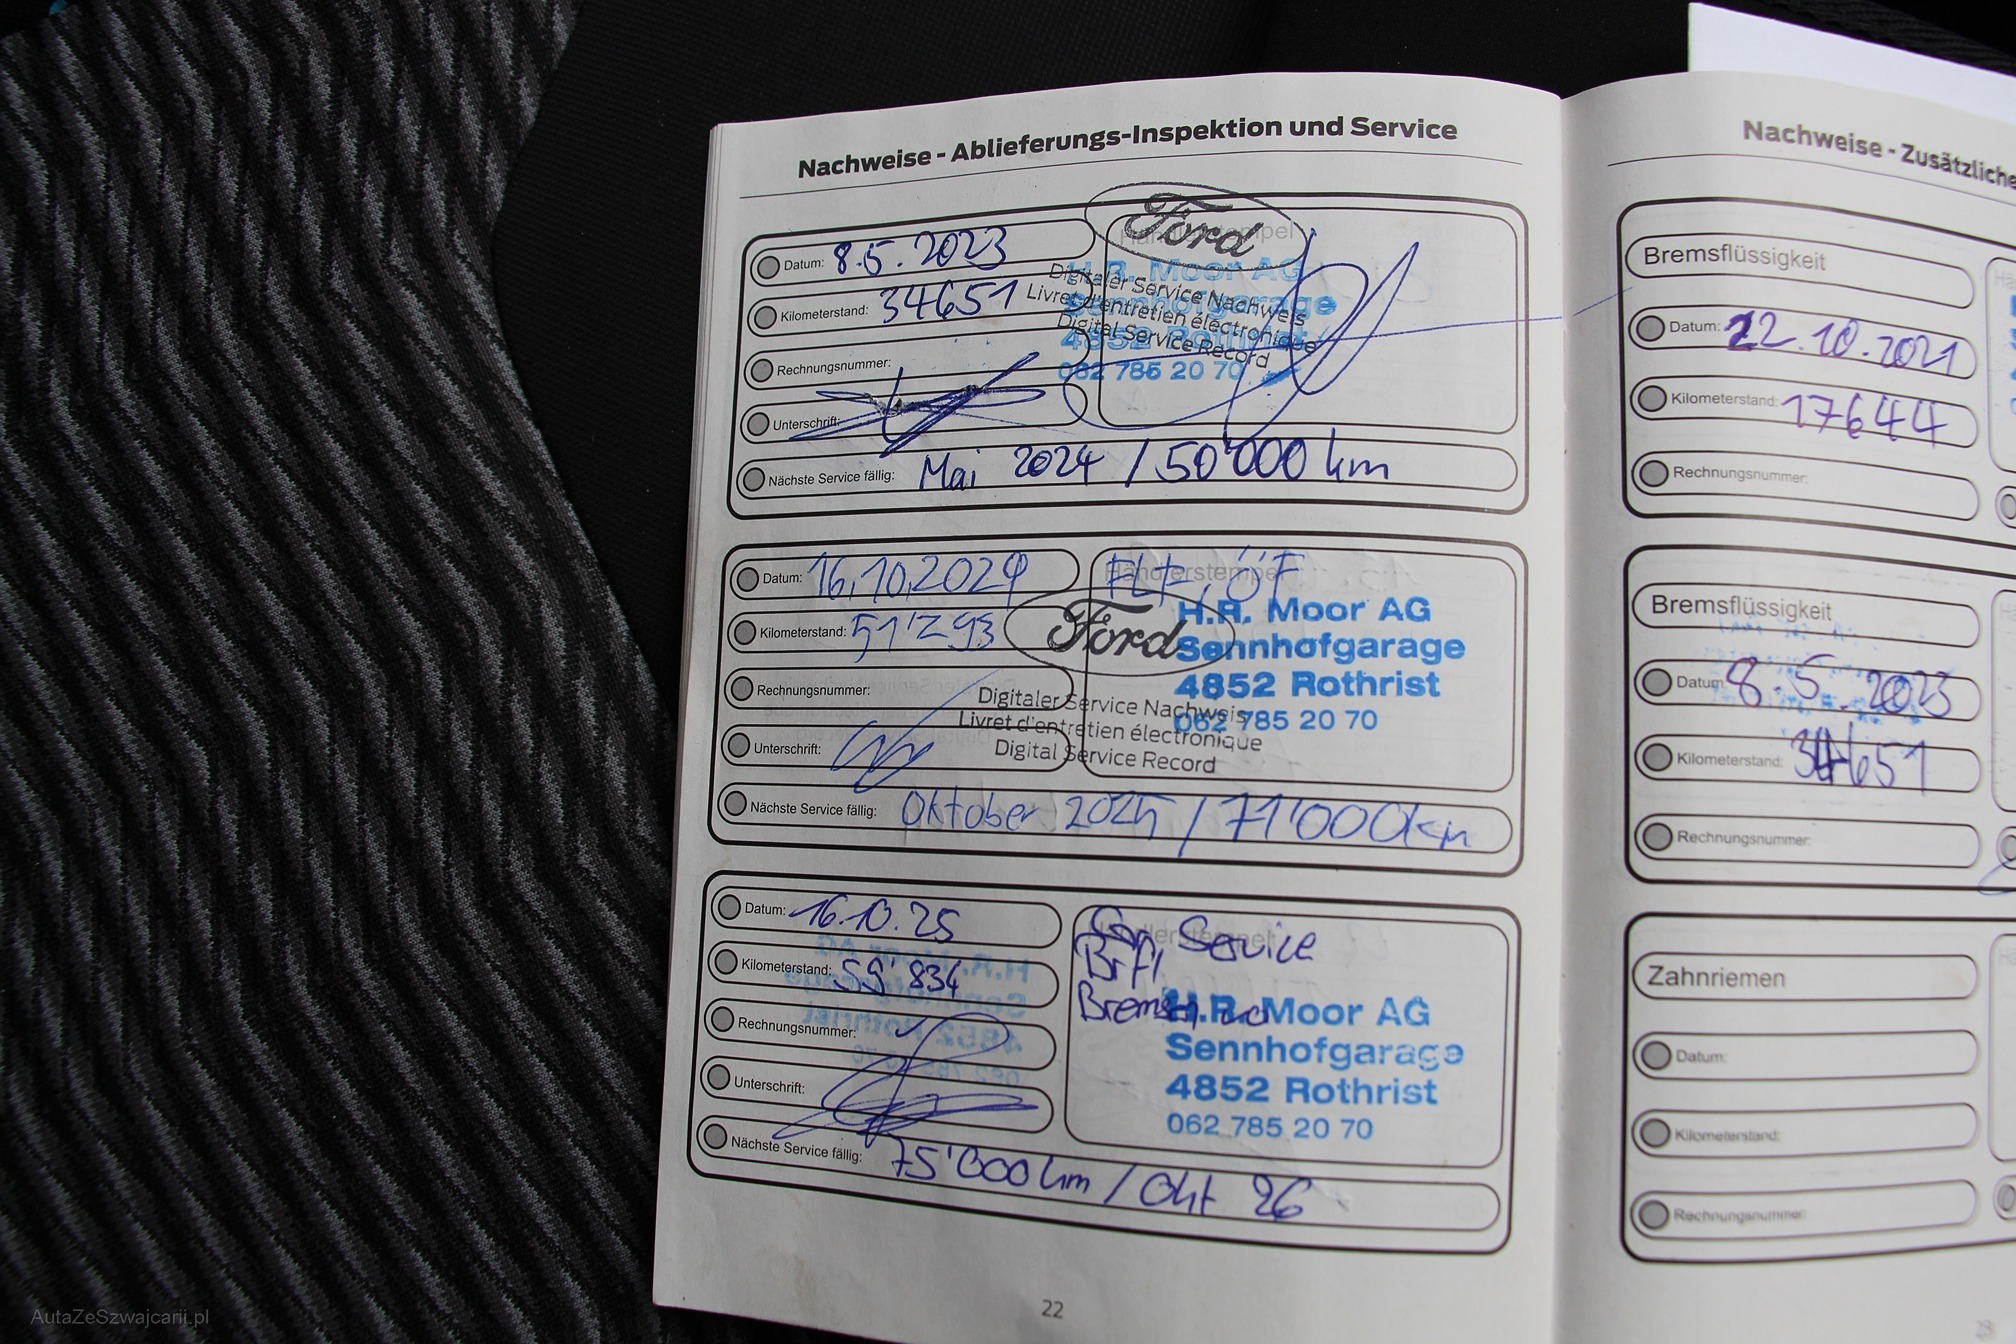 Nachweise - Ablieferungs-Inspektion und Service
Ford
Händlerstempel
Datum: 8.5.2023
H.R. Moor AG
Digitaler Service Nachweis
Kilometerstand: 34651
Livret d'entretien électronique
Sennhofgarage
Digital Service Record
4852 Rothrist
Rechnungsnummer:
062 785 20 70
Unterschrift:
Nächste Service fällig: Mai 2024 / 50'000 km
Datum: 16.10.2024
Händlerstempel
ÖF
Kilometerstand: 51'293
Ford
H.R. Moor AG
Sennhofgarage
4852 Rothrist
062 785 20 70
Rechnungsnummer:
Digitaler Service Nachweis
Livret d'entretien électronique
Digital Service Record
Unterschrift:
Nächste Service fällig: Oktober 2025 / 71'000 km
Datum: 16.10.25
Händlerstempel
Service
Brfl
Kilometerstand: 59'834
H.R. Moor AG
Sennhofgarage
4852 Rothrist
062 785 20 70
Rechnungsnummer:
Unterschrift:
Nächste Service fällig: 75'000 km / Okt 26
22
Nachweise - Zusätzliche
Bremsflüssigkeit
Datum: 22.10.2021
Kilometerstand: 17644
Rechnungsnummer:
Bremsflüssigkeit
Datum: 8.5.2023
Kilometerstand: 34651
Rechnungsnummer:
Zahnriemen
Datum:
Kilometerstand:
Rechnungsnummer:
23
AutaZeSzwajcarii.pl